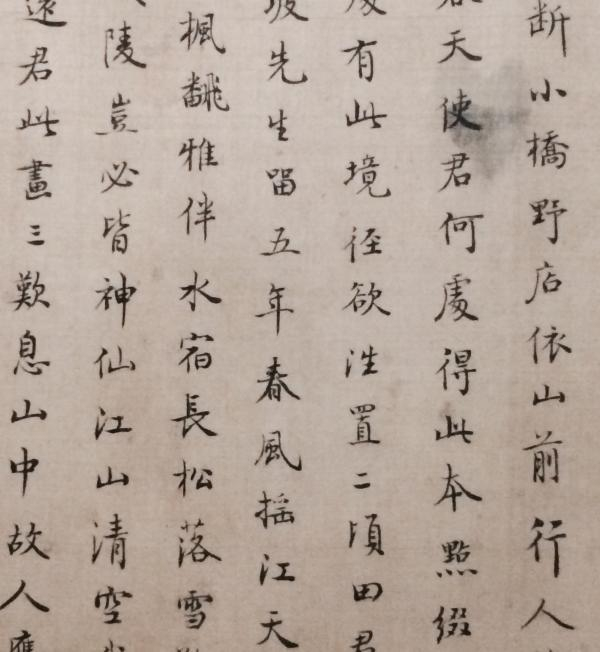 断小橋野店依山前行人
天使君何處得此本點綴
有此境径欲往置二頃田君
坡先生留五年春風揺江天
楓翻雅伴水宿長松落雪
陵豈必皆神仙江山清空
遠君此畫三歎息山中故人應